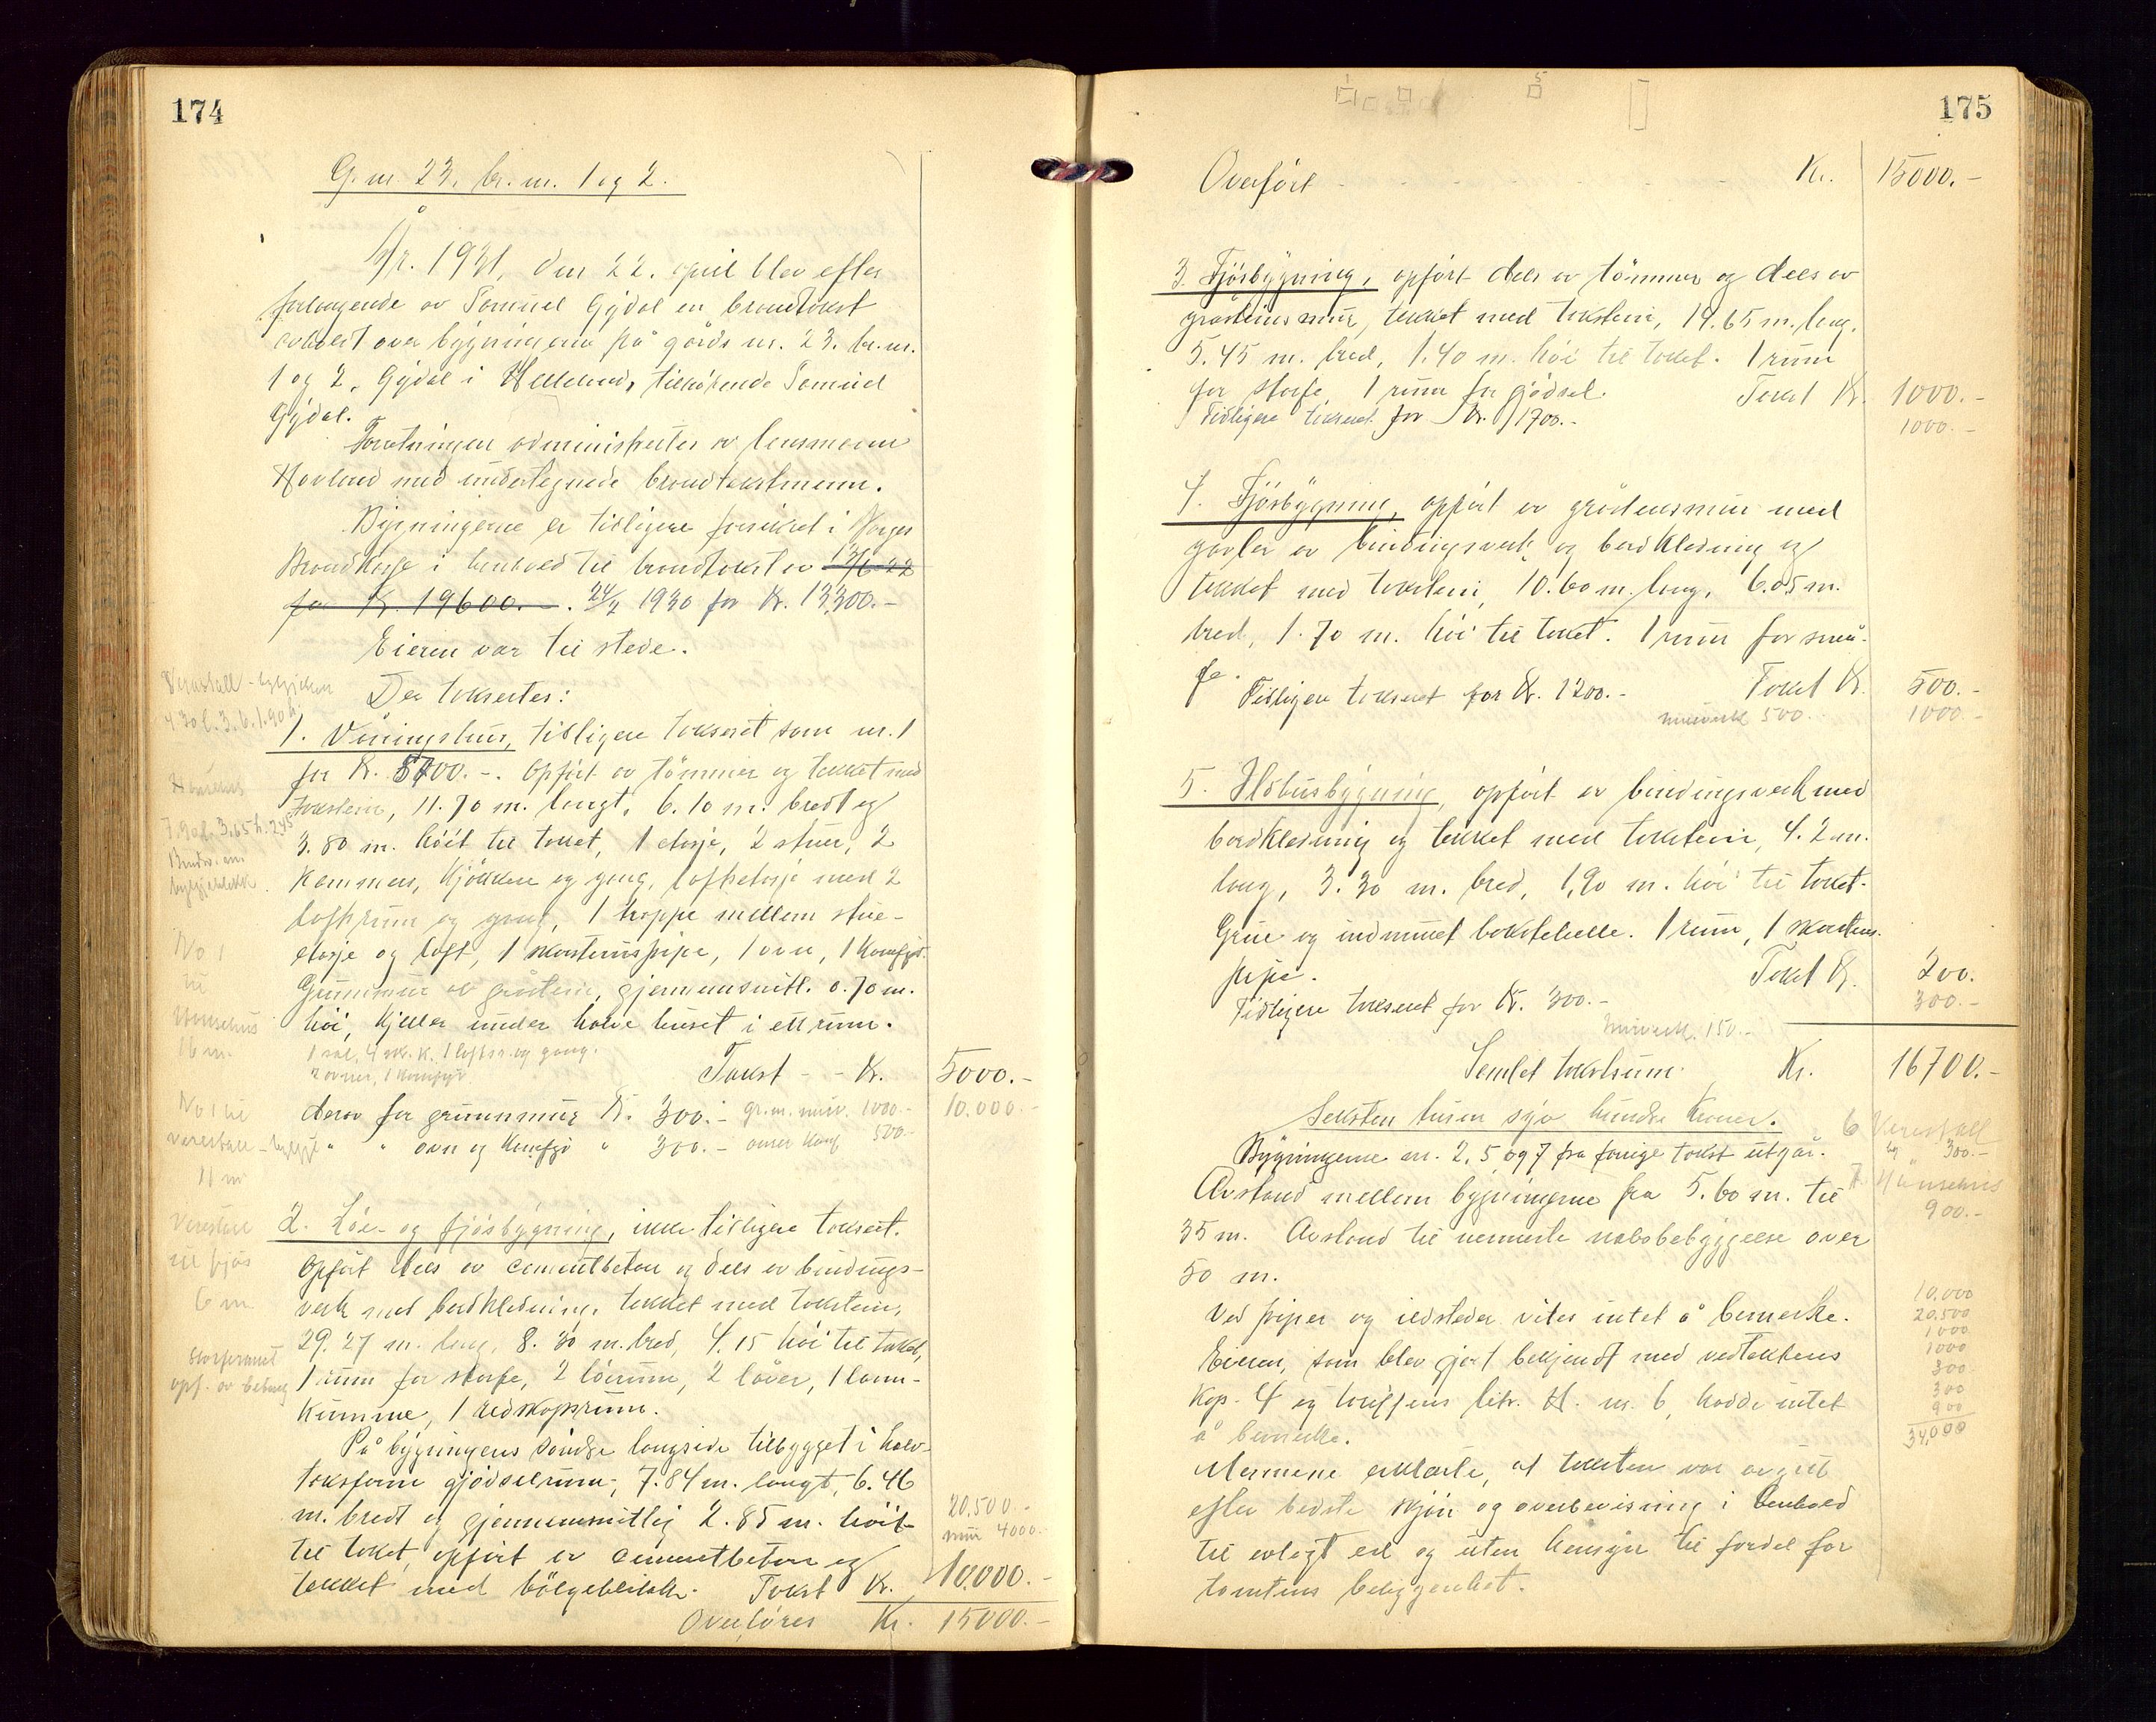 174
G. nr. 23. br. nr. 1 og 2.
År. 1931, den 22. april blev efter
forlangende av Samuel Gýdal en brandtakst
avholdt over býgningene på gårds nr. 23. br. nr.
1 og 2, Gýdal i Helleland, tilhörende Samuel
Gýdal.
Forretningen administrertes av lensmann
Hovland med undertegnede brandtakstmenn.
Býgningene er tidligere forsikret i Norges
Brandkasse i henhold til brandtakst av 13/6-22
for Kr. 19600.- . 24/2 1930 for Kr. 13300.-
Eieren var til stede.
Der takseertes:
1. Våningshus, tidligere taksert som nr. 1
for Kr. 5700.-. Opfört av tömmer og tekket med
takstein, 11.70 m. langt, 6.10 m. bredt og
3.80 m. höit til taket, 1 etasje, 2 stuer, 2
kammers, kjökken og gang, loftsetasje med 2
loftsrum og gang, 1 trappe mellem stue-
etasje og loft, 1 skorsteinspipe, 1 ovn, 1 komfyr.
Grunnmur av gråstein, gjennemsnitl. 0.70 m.
höi, kjeller under halve huset i ett rum.
1 sal, 4 sk. k. 1 loftsr. og gang.
2 ovner, 1 komfyr
Takst - - Kr. 5000.-
10.000.-
derav for grunnmur Kr. 300.- gr. m. murv. 1000.-
" " ovn og komfyr " 300.- ovner komf 500.-
2. Löe- og fjösbýgning, ikke tidligere taksert.
Opfört dels av cementbeton og dels av bindings-
verk med bordkledning, tekket med takstein,
29.27 m. lang, 8.30 m. bred, 4.15 höi til taket,
1 rum for storfe, 2 löerum, 2 låver, 1 lann-
kumme, 1 redskapsrum.
På býgningens söndre langside tilbygget i halv-
taksform gjödselrum, 7.84 m. langt, 6.46
m. bredt og gjennemsnitlig 2.85 m. höit
til taket, opfört av cementbeton og
tekket med bölgeblikk. Takst Kr. 10,000.-
20.500.-
mur 4000.-
Overföres Kr. 15000.-
7.90 l. 3.65 h. 2.45
No 1
til
16 m.
No 1 til
11 m
til fjös
6 m.
175
Overfört - - - - Kr. 15000.-
3. Fjösbýgning, opfört dels av tömmer og dels av
gråsteinsmur, tekket med takstein, 19.65 m. lang.
5.45 m. bred, 1.40 m. höi til taket. 1 rum
for storfe, 1 rum for gjödsel. Takst Kr. 1000.-
Tidligere taksert for Kr. 1700.-
1000.-
4. Fjösbýgning, opfört av gråsteinsmur med
gavler av bindingsverk og bordkledning og
tekket med takstein, 10.60 m. lang, 6.05 m.
bred, 1.70 m. höi til taket. 1 rum for små-
fe. Tidligere taksert for Kr. 1200.- Takst Kr. 500.-
murverk 500. 1000.-
5. Ildhusbýgning, opfört av bindingsverk med
bordkledning og tekket med takstein, 4.2 m.
lang, 3.30 m. bred, 1,90 m. höi til taket.
Grue og indmuret bakstehelle. 1 rum, 1 skorsteins-
pipe. Takst Kr. 200.
Tidligere taksert for Kr. 300.- 300.-
Murverk. 150.-
Samlet takstsum Kr. 16700.-
Seksten tusen syv hundre kroner.
Býgningene nr. 2, 5 og 7 fra forrige takst utgår.
Avstand mellem bygningene fra 5.60 m. til
35 m. Avstand til nermeste nabobebyggelse over
50 m.
Ved piper og ildsteder vites intet å bemerke.
Eieren, som blev gjort bekjendt med vedtektens
kap. 4 og tariffens litr. H. nr. 6, hadde intet
å bemerke.
Mennene erklærte, at taksten var avgitt
efter bedste skjön og overbevisning i henhold
til avlagt ed og uten hensyn til fordel for
tomtens beliggenhet.
300.-
900.-
10,000
20.500
1000
1000
300
300
900
34,000